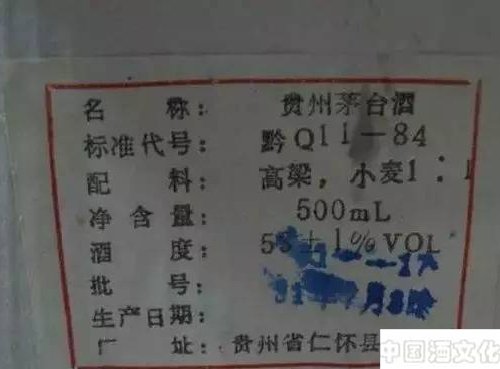 名 称：贵州茅台酒
标准代号：黔Q11－84
配 料：高粱，小麦1：1
净 含 量：500mL
酒 度：53±1%VOL
批 号：
生产日期：
厂 址：贵州省仁怀县
中国酒文化